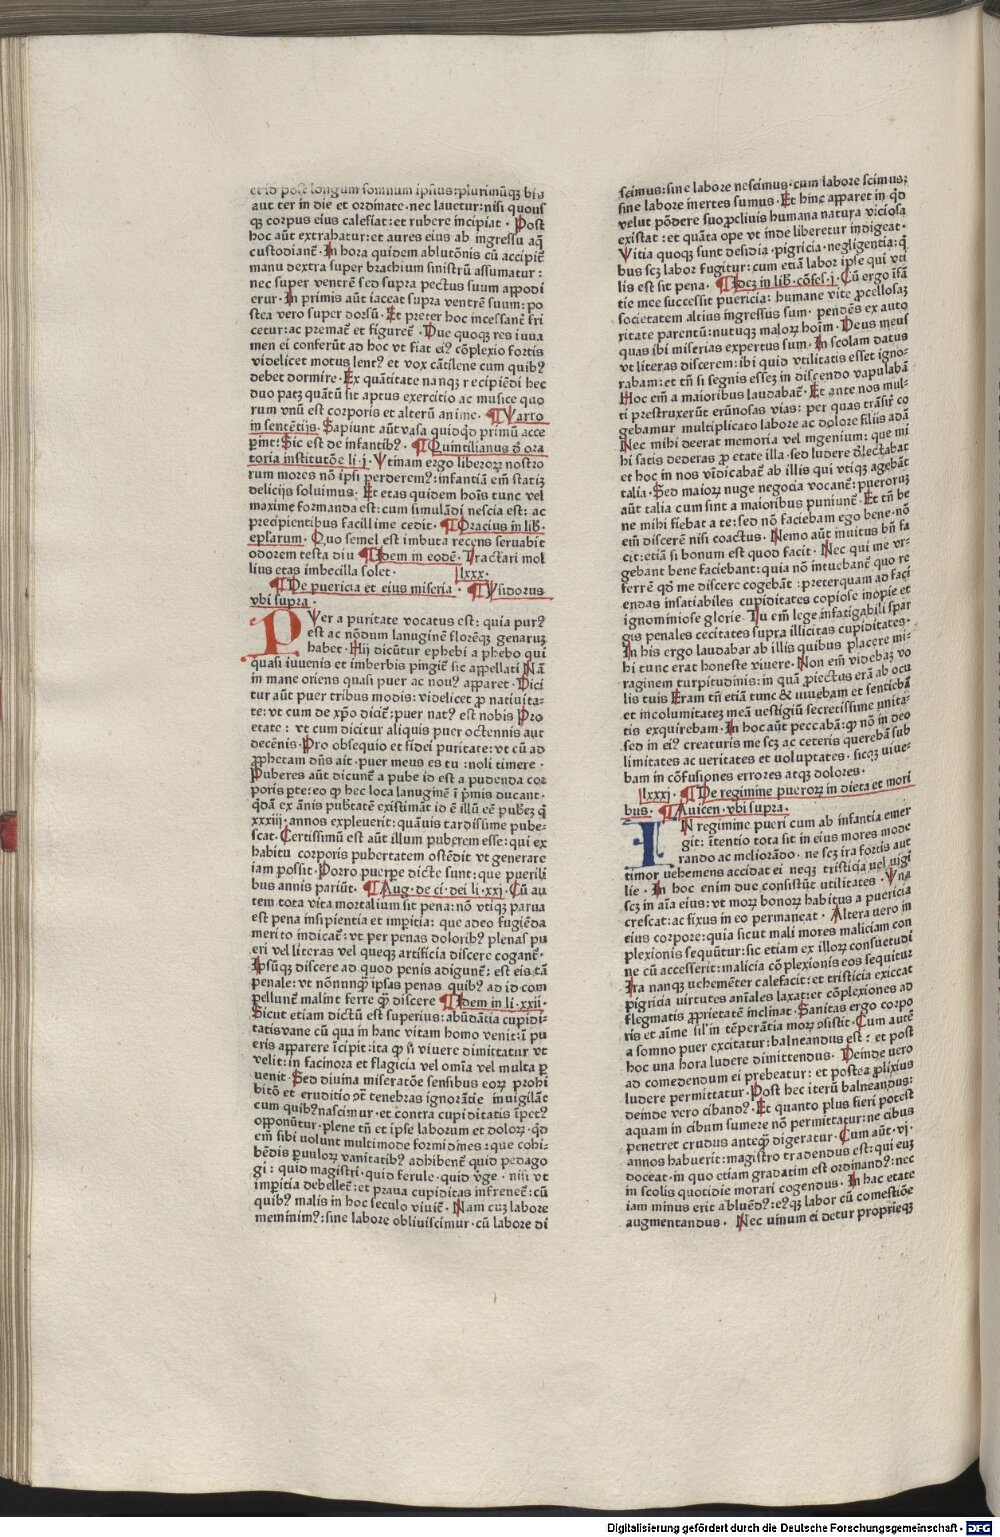 et id post longum somnum ipsius: plurimūqꝫ bis
aut ter in die et ordinate·nec lauetur: nisi quous
qꝫ corpus eius calefiat: et rubere incipiat · Post
hoc aūt extrahatur: et aures eius ab ingressu aq̄
custodianť· In hora quidem ablutōnis cū accipiť
manu dextra super brachium sinistrū assumatur :
nec super ventrē sed supra pectus suum appodi
etur· In primis aūt iaceat supra ventrē suum: po
stea vero super dorsū· Et preter hoc incessanť fri
cetur: ac premať et figureť · Due quoqꝫ res iuua
men ei conferūt ad hoc vt fiat eiꝰ cōplexio fortis
videlicet motus lentꝰ et vox cātilene cum quibꝰ
debet dormire· Ex quātitate nanqꝫ recipiēdi hec
duo patꝫ quātū sit aptus exercitio ac musice quo
rum vnū est corporis et alterū anime· ¶ Varro
in sententijs· Sapiunt aūt vasa quidqd primū acce
perint: Sic est de infantibꝰ· ¶ Quintilianus ī ora
toria institutōe li·j· Vtinam ergo liberoꝝ nostro
rum mores nō ipsi perderemꝰ: infantiā em̄ statiꝫ
delicijs soluimus: Et etas quidem hoīs tunc vel
maxime formanda est: cum simulādi nescia est: ac
precipientibus facillime cedit· ¶ Oracius in lib̄·
eplarum· Quo semel est imbuta recens seruabit
odorem testa diu ¶ Idem in eodē· Tractari mol
lius etas imbecilla solet· lxxx·
¶ De puericia et eius miseria · ¶ Ysidorus
vbi supra·
PVer a puritate vocatus est: quia purꝰ
est ac nōdum lanuginē florēqꝫ genaruꝫ
habet· Hij dicūtur ephebi a phebo qui
quasi iuuenis et imberbis pingiť sic appellati Nā
in mane oriens quasi puer ac nouꝰ apparet· Dici
tur aūt puer tribus modis: videlicet ꝓ natiuita-
te: vt cum de xp̄o diciť: puer natꝰ est nobis Pro
etate: vt cum dicitur aliquis puer octennis aut
decēnis· Pro obsequio et fidei puritate: vt cū ad
ꝓphetam dn̄s ait· puer meus es tu: noli timere·
Puberes aūt dicunť a pube id est a pudenda cor
poris pte: eo ꝙ hec loca lanuginē ī p̄mis ducant·
qdā ex ānis pub̄tatē existimāt id ē illū eē pub̄eꝫ q̄
xxxiij· annos expleuerit: quāuis tardissime pube-
scat· Certissimū est aūt illum puberem esse: qui ex
habitu corporis pubertatem ostēdit vt generare
iam possit· Porro puerpe dicte sunt: que puerili
bus annis pariūt· ¶ Aug·de ci·dei li·xxj· Cū au
tem tota vita mortalium sit pena: nō vtiqꝫ parua
est pena insipientia et imperitia: que adeo fugiēda
merito indicať: vt per penas doloribꝰ plenas pu
eri vel literas vel queqꝫ artificia discere coganť·
Ipsūqꝫ discere ad quod penis adigunť: est eis tā
penale: vt nōnunꝙ ipsas penas quibꝰ ad id com
pellunť malint ferre ꝙ discere ¶ Idem in li·xxii·
Sicut etiam dictū est superius: abūdātia cupidi-
tatis vane cū qua in hanc vitam homo venit: ī pu
eris apparere īcipit: ita ꝙ si viuere dimittatur vt
velit: in facinora et flagicia vel omīa vel multa per
uenit· Sed diuina miseratōe sensibus eoꝝ prohi
bitō et eruditio ꝯt̄ tenebras ignorātie inuigilāt
cum quibꝰ nascimur·et contra cupiditatis īpetꝰ
opponūtur·plene tn̄ et ipse laborum et doloꝝ·qd
em̄ sibi volunt multimode formidines: que cohi-
bēdis puuloꝝ vanitatibꝰ adhibenť quid pedago
gi: quid magistri·quid ferule·quid v̄ge· nisi vt
imperitia debelleť: et praua cupiditas infreneť: cū
quibꝰ malis in hoc seculo viuiť· Nam cuꝫ labore
meminimꝰ: sine labore obliuiscimur·cū labore di
scimus: sine labore nescimus·cum labore scimus:
sine labore inertes sumus· Et hinc apparet in qd
velut pōdere suo ꝓcliuis humana natura viciosa
existat: et quāta ope vt inde liberetur indigeat·
Vitia quoqꝫ sunt desidia·pigricia·negligentia: q̄
bus scꝫ labor fugitur: cum etiā labor ipse qui vti
lis est sit pena· ¶ Ideꝫ in lib̄·cōfes·j· Cū ergo īfā
tie mee successit puericia: humane vite ꝓcellosaꝫ
societatem altius ingressus sum· pendēs ex auto
ritate parentū: nutuqꝫ maloꝝ hoīm· Deus meus
quas ibi miserias expertus sum· In scolam datus
vt literas discerem: ibi quid vtilitatis esset igno-
rabam: et tn̄ si segnis esseꝫ in discendo vapulabā
Hoc em̄ a maioribus laudabať· Et ante nos mul-
ti prestruxerūt erūnosas vias: per quas trāsir̄ co
gebamur multiplicato labore ac dolore filiis adā
Nec mihi deerat memoria vel ingenium: que mi
hi satis dederas ꝓ etate illa·sed ludere dlectabat
et hoc in nos vīdicabať ab illis qui vtiqꝫ agebāt
talia· Sed maioꝝ nuge negocia vocanť: pueroruꝫ
aūt talia cum sint a maioribus puniunť· Et tn̄ be
ne mihi fiebat a te: sed nō faciebam ego bene·nō
em̄ discerē nisi coactus· Nemo aūt inuitus bn̄ fa
cit: etiā si bonum est quod facit· Nec qui me vr-
gebant bene faciebant: quia nō intuebanť quo re
ferrē qd me discere cogebāt: preterquam ad faci
endas insatiabiles cupiditates copiose inopie et
ignominiose glorie· Tu em̄ lege infatigabili spar
gis penales cecitates supra illicitas cupiditates·
In his ergo laudabar ab illis quibus placere mi-
hi tunc erat honeste viuere· Non em̄ videbaꝫ vo
raginem turpitudinis: in quā ꝓiectus erā ab ocu
lis tuis Eram tn̄ etiā tunc & uiuebam et sentiebā
et incolumitateꝫ meā vestigiū secretissime vnita-
tis exquirebam· In hoc aūt peccabā: ꝙ nō in deo
sed in eiꝰ creaturis me scꝫ ac ceteris querebā sub
limitates ac veritates et voluptates· sicqꝫ uiue-
bam in cōfusiones errores atqꝫ dolores·
lxxxj· ¶ De regimine pueroꝝ in dieta et mori
bus· ¶ Auicen·vbi supra·
IN regimine pueri cum ab infantia emer
git: ītentio tota sit in eius mores mode
rando ac meliorādo· ne scꝫ ira fortis aut
timor vehemens accidat ei neqꝫ tristicia vel vigi
lie· In hoc enim due consistūt vtilitates· Vna
scꝫ in aīa eius: vt moꝝ bonoꝝ habitus a puericia
crescat: ac fixus in eo permaneat· Altera vero in
eius corpore: quia sicut mali mores maliciam con
plexionis sequūtur: sic etiam ex illoꝝ consuetudi
ne cū accesserit: malicia cōplexionis eos sequitur
Ira nanqꝫ vehemēter calefacit: et tristicia exiccat
pigricia virtutes anīales laxat: et cōplexiones ad
flegmatis ꝓprietatē inclinat· Sanitas ergo corpo
ris et aīme sil̄ in tēperātia moꝝ ꝯsistit· Cum autē
a somno puer excitatur: balneandus est: et post
hoc una hora ludere dimittendus· Deinde vero
ad comedendum ei prebeatur: et postea ꝓlixius
ludere permittatur· Post hec iterū balneandus:
deinde vero cibandꝰ· Et quanto plus fieri potest
aquam in cibum sumere nō permittatur: ne cibus
penetret crudus anteꝙ digeratur· Cum aūt·vj·
annos habuerit: magistro tradendus est: qui euꝫ
doceat·in quo etiam gradatim est ordinandꝰ: nec
in scolis quotidie morari cogendus· In hac etate
iam minus erit abluēdꝰ: eiꝰqꝫ labor cū comestiōe
augmentandus· Nec uinum ei detur proprieqꝫ
Digitalisierung gefördert durch die Deutsche Forschungsgemeinschaft · DFG